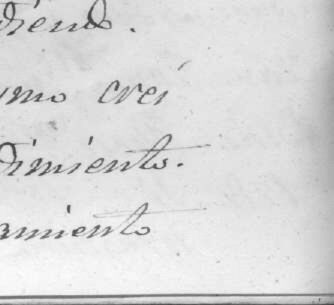 diendo.
umo creí
dimiento.
amiento